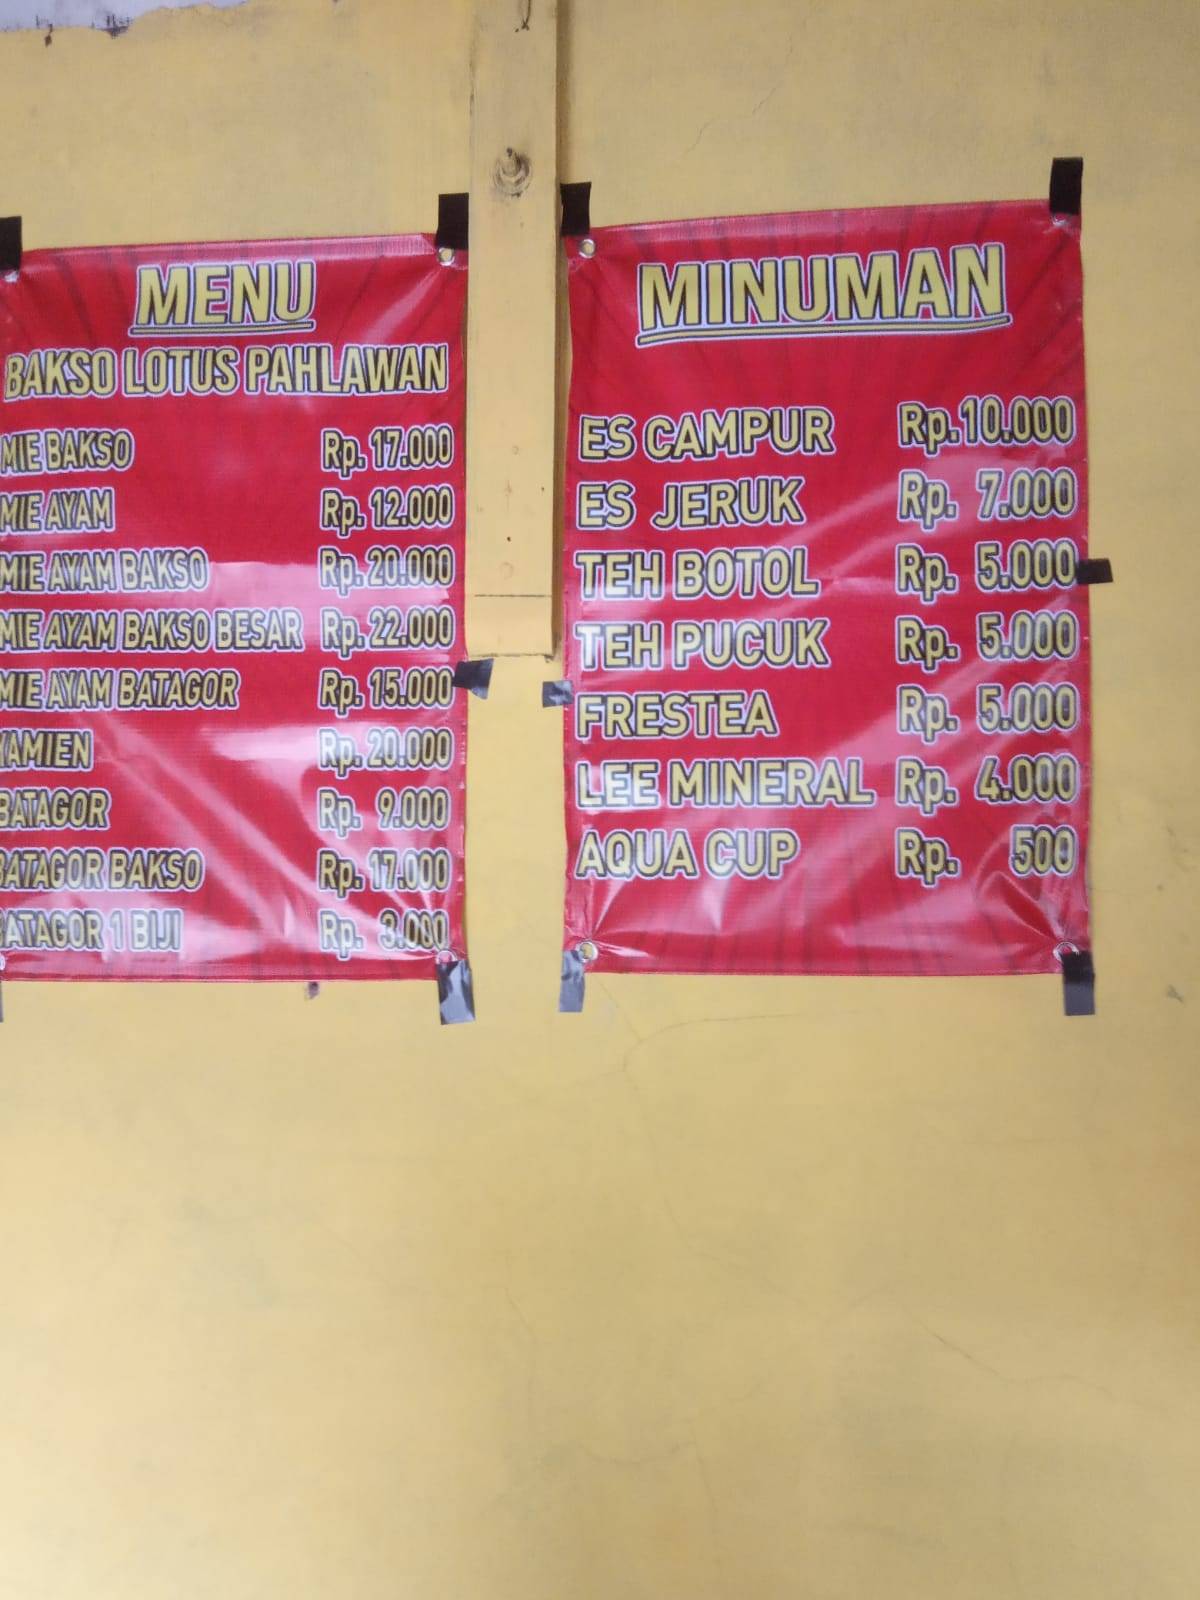 MENU
BAKSO LOTUS PAHLAWAN
MIE BAKSO Rp. 17.000
MIE AYAM Rp. 12.000
MIE AYAM BAKSO Rp. 20.000
MIE AYAM BAKSO BESAR Rp. 22.000
MIE AYAM BATAGOR Rp. 15.000
YAMIEN Rp. 20.000
BATAGOR Rp. 9.000
BATAGOR BAKSO Rp. 17.000
BATAGOR 1 BIJI Rp. 3.000
MINUMAN
ES CAMPUR Rp.10.000
ES JERUK Rp. 7.000
TEH BOTOL Rp. 5.000
TEH PUCUK Rp. 5.000
FRESTEA Rp. 5.000
LEE MINERAL Rp. 4.000
AQUA CUP Rp. 500